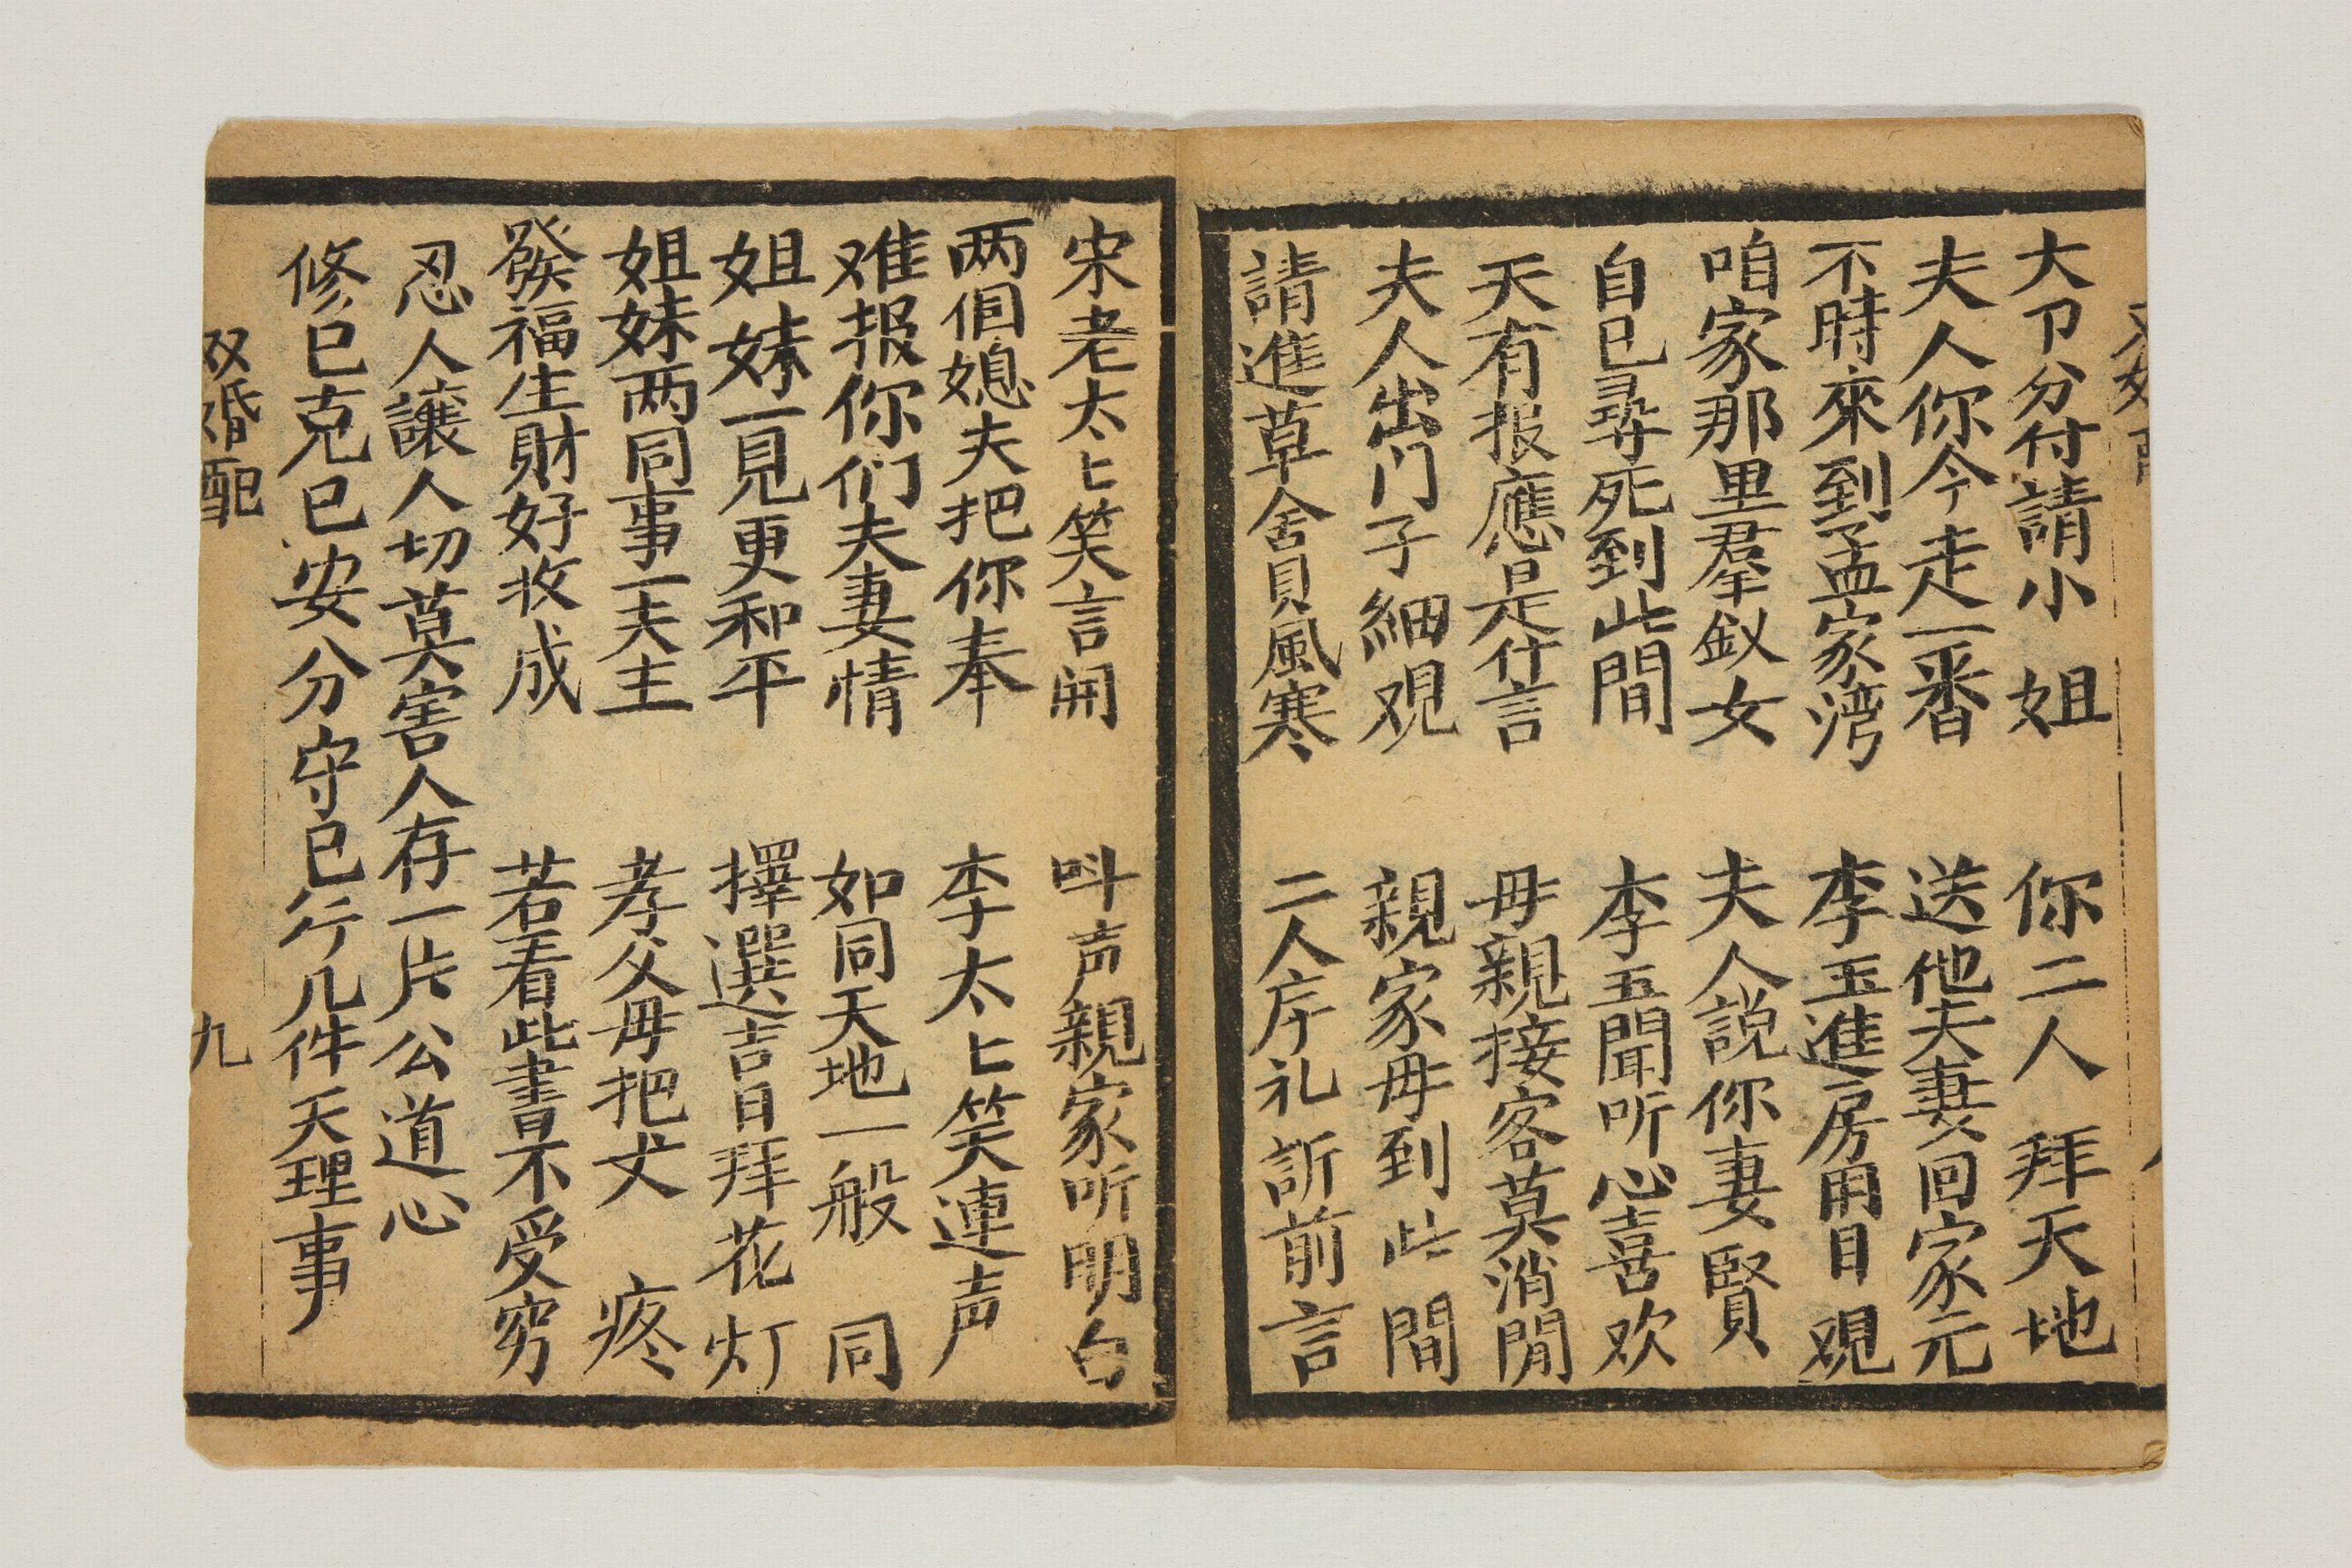 大卩分付請小姐　你二人拜天地
夫人你今走一番　送他夫妻回家元
不時來到孟家湾　李玉進房用目观
咱家那里羣釵女　夫人説你妻賢
自已尋死到此間　李玉聞听心喜欢
天有报應是什言　母親接客莫消閒
夫人出门子細观　親家母到此間
請進草舍見風寒　二人序礼訴前言
宋老太匕笑言開　呌声親家听明白
两個媳夫把你奉　李太匕笑連声
难报你们夫妻情　如同天地一般同
姐妹一見更和平　擇選吉日拜花灯
姐妹两同事一夫主　孝父母把丈疼
發福生財好收成　若看此書不受穷
忍人讓人切莫害人存一片公道心
修已克已安分守已行几件天理事
双婚配
九